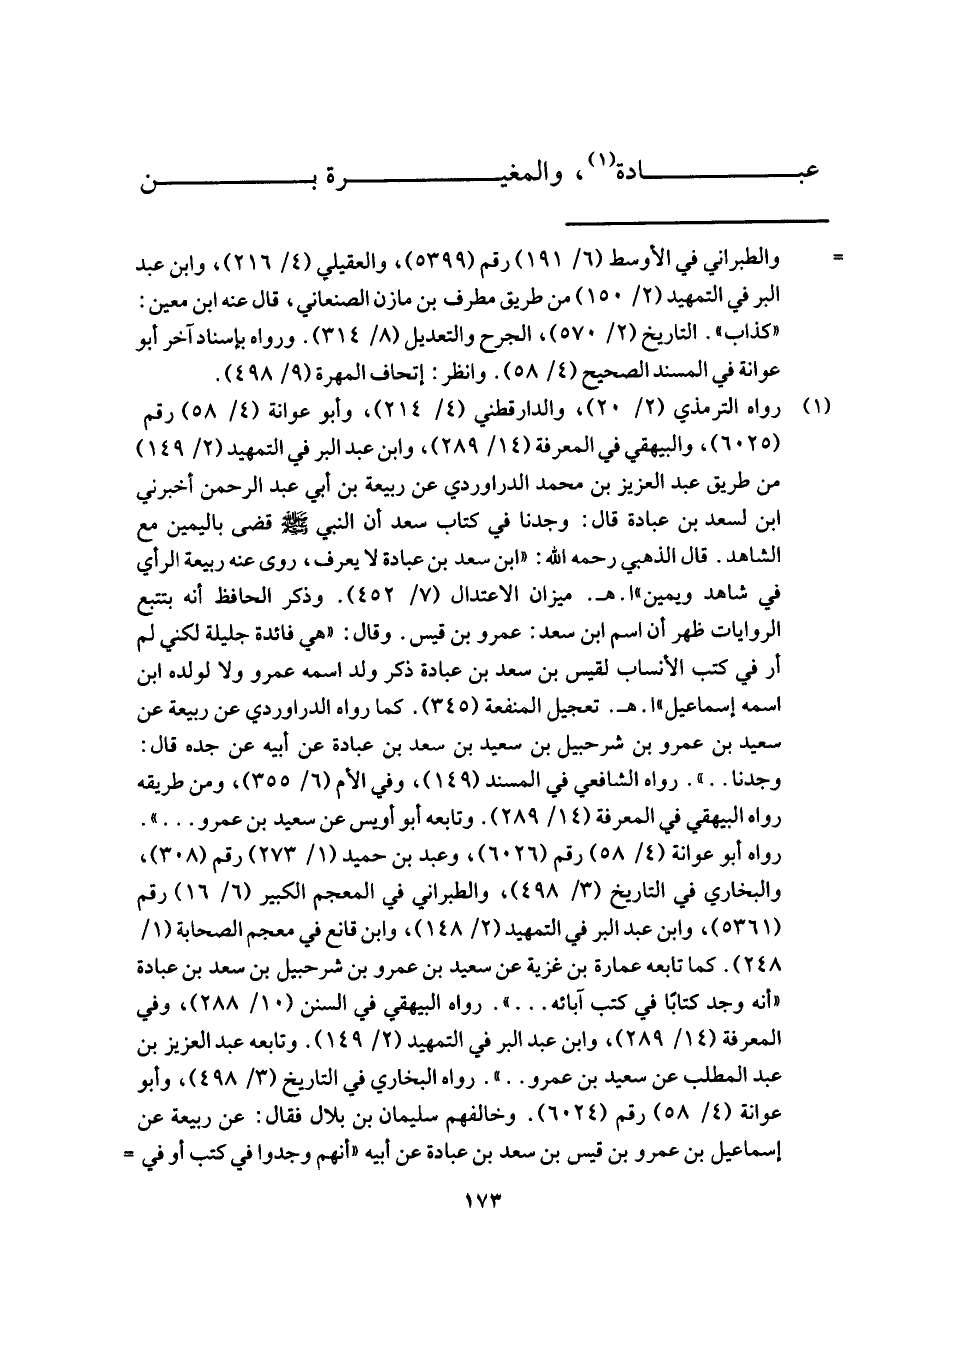 عبـــــــــــادة(١)، والمغيـــــــــــرة بـــــــــــن
= والطبراني في الأوسط (٦/ ١٩١) رقم (٥٣٩٩)، والعقيلي (٤/ ٢١٦)، وابن عبد
البر في التمهيد (٢/ ١٥٠) من طريق مطرف بن مازن الصنعاني، قال عنه ابن معين:
«كذاب». التاريخ (٢/ ٥٧٠)، الجرح والتعديل (٨/ ٣١٤). ورواه بإسناد آخر أبو
عوانة في المسند الصحيح (٤/ ٥٨). وانظر: إتحاف المهرة (٩/ ٤٩٨).
(١) رواه الترمذي (٢/ ٢٠)، والدارقطني (٤/ ٢١٤)، وأبو عوانة (٤/ ٥٨) رقم
(٦٠٢٥)، والبيهقي في المعرفة (١٤/ ٢٨٩)، وابن عبد البر في التمهيد (٢/ ١٤٩)
من طريق عبد العزيز بن محمد الدراوردي عن ربيعة بن أبي عبد الرحمن أخبرني
ابن لسعد بن عبادة قال: وجدنا في كتاب سعد أن النبي ﷺ قضى باليمين مع
الشاهد. قال الذهبي رحمه الله: «ابن سعد بن عبادة لا يعرف، روى عنه ربيعة الرأي
في شاهد ويمين»ا.هـ. ميزان الاعتدال (٧/ ٤٥٢). وذكر الحافظ أنه بتتبع
الروايات ظهر أن اسم ابن سعد: عمرو بن قيس. وقال: «هي فائدة جليلة لكني لم
أر في كتب الأنساب لقيس بن سعد بن عبادة ذكر ولد اسمه عمرو ولا لولده ابن
اسمه إسماعيل»ا.هـ. تعجيل المنفعة (٣٤٥). كما رواه الدراوردي عن ربيعة عن
سعيد بن عمرو بن شرحبيل بن سعيد بن سعد بن عبادة عن أبيه عن جده قال:
وجدنا...». رواه الشافعي في المسند (١٤٩)، وفي الأم (٦/ ٣٥٥)، ومن طريقه
رواه البيهقي في المعرفة (١٤/ ٢٨٩). وتابعه أبو أويس عن سعيد بن عمرو...».
رواه أبو عوانة (٤/ ٥٨) رقم (٦٠٢٦)، وعبد بن حميد (١/ ٢٧٣) رقم (٣٠٨)،
والبخاري في التاريخ (٣/ ٤٩٨)، والطبراني في المعجم الكبير (٦/ ١٦) رقم
(٥٣٦١)، وابن عبد البر في التمهيد (٢/ ١٤٨)، وابن قانع في معجم الصحابة (١/
٢٤٨). كما تابعه عمارة بن غزية عن سعيد بن عمرو بن شرحبيل بن سعد بن عبادة
«أنه وجد كتابًا في كتب آبائه...». رواه البيهقي في السنن (١٠/ ٢٨٨)، وفي
المعرفة (١٤/ ٢٨٩)، وابن عبد البر في التمهيد (٢/ ١٤٩). وتابعه عبد العزيز بن
عبد المطلب عن سعيد بن عمرو...». رواه البخاري في التاريخ (٣/ ٤٩٨)، وأبو
عوانة (٤/ ٥٨) رقم (٦٠٢٤). وخالفهم سليمان بن بلال فقال: عن ربيعة عن
إسماعيل بن عمرو بن قيس بن سعد بن عبادة عن أبيه «أنهم وجدوا في كتب أو في =
١٧٣